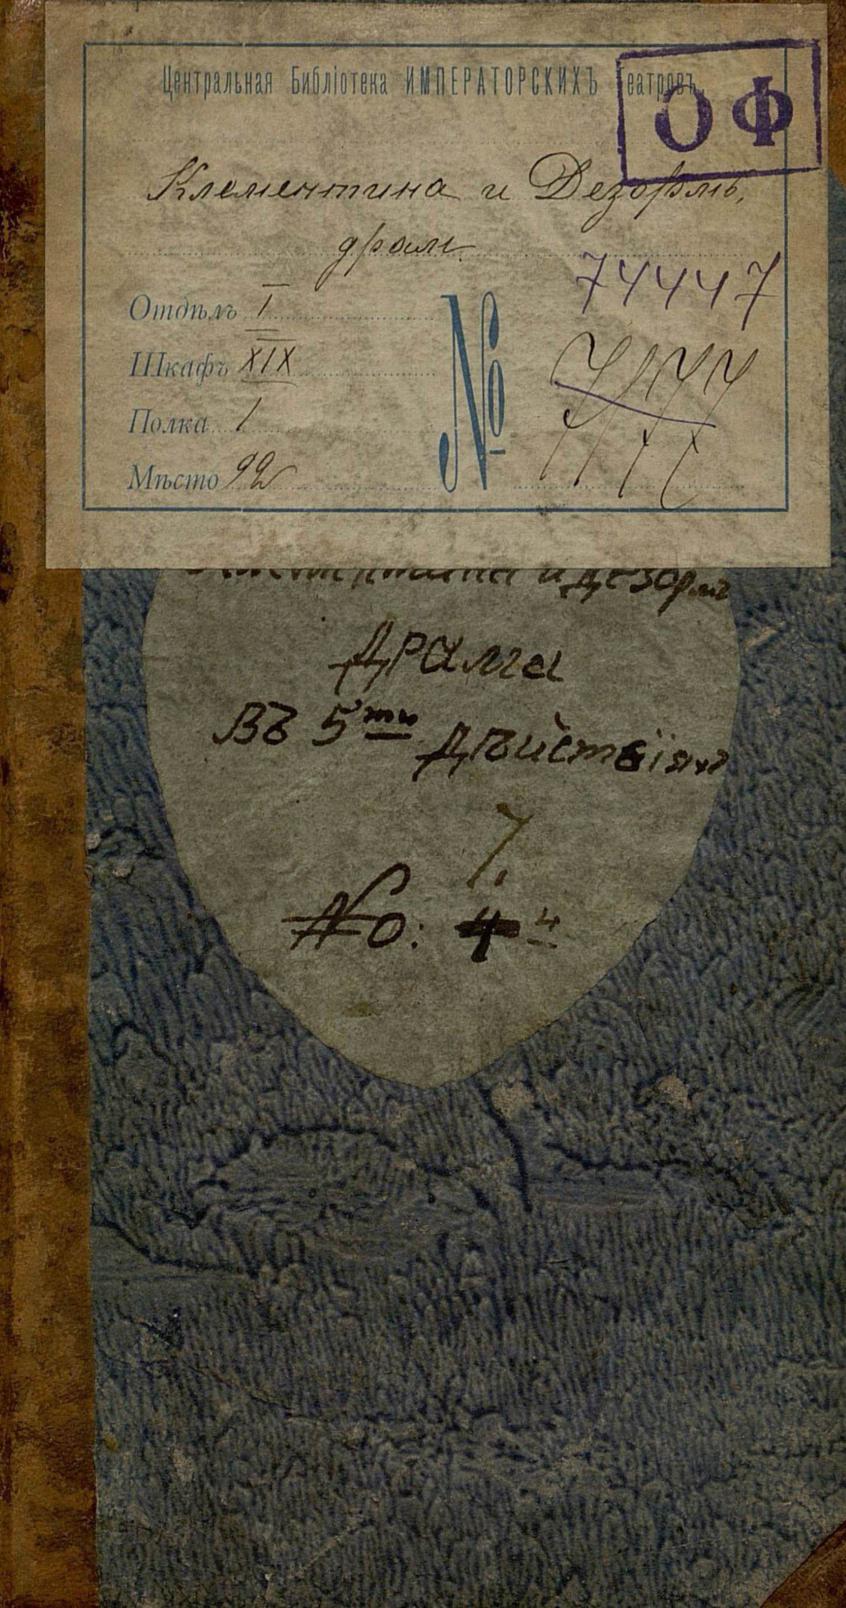 Центральная Библіотека ИМПЕРАТОРСКИХЪ Театровъ.
ОФ
Клементина и Дезормъ,
драм.
74447
Отдѣлъ I
Шкафъ XIX
№
Полка 1
Мѣсто 92
Клементина и Дезормъ
Драма
ВЪ 5ти
Дѣйствіяхъ
7.
No: 4 4